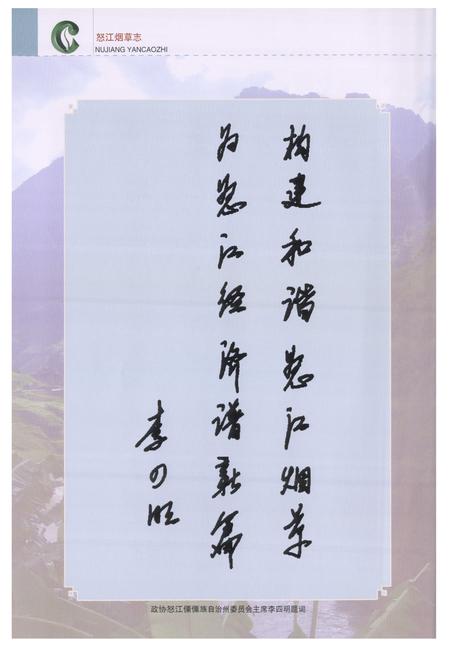 怒江烟草志
NUJIANG YANCAOZHI
构建和谐怒江烟草
为怒江经济谱新篇
李四明
政协怒江傈僳族自治州委员会主席李四明题词